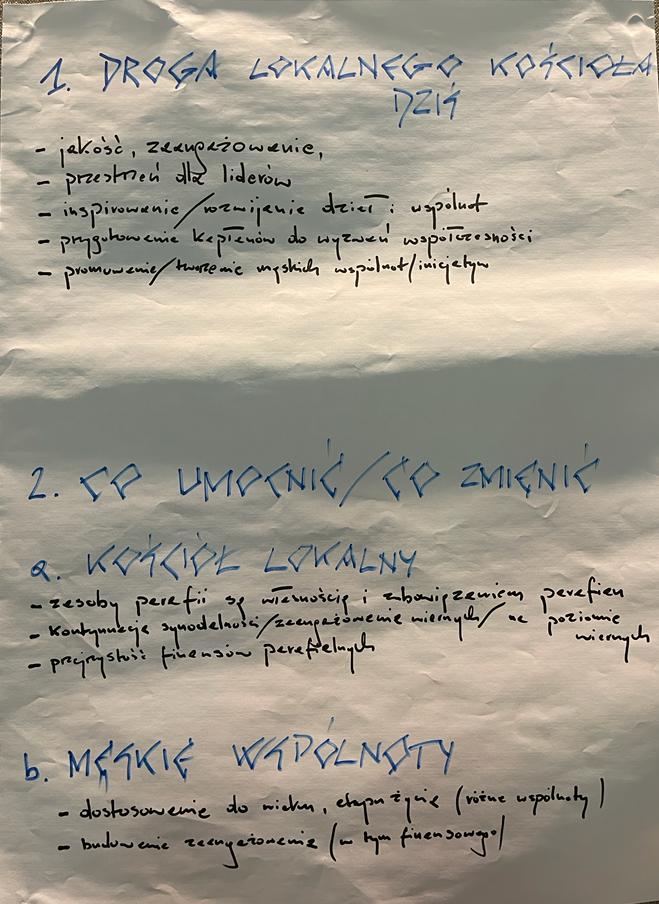 1. DROGA LOKALNEGO KOŚCIOŁA
DZIŚ
- jakość, zaangażowanie,
- przestrzeń dla liderów
- inspirowanie/rozwijanie dzieł i wspólnot
- przygotowanie kapłanów do wyzwań współczesności
- promowanie/tworzenie męskich wspólnot/inicjatyw
2. CO UMOCNIĆ/CO ZMIENIĆ
a. KOŚCIÓŁ LOKALNY
- zasoby parafii są własnością i zobowiązaniem parafian
- kontynuacja synodalności/zaangażowanie wiernych/ na poziomie
wiernych
- przejrzystość finansów parafialnych
b. MĘSKIE WSPÓLNOTY
- dostosowanie do wieku, etapu życia (różne wspólnoty)
- budowanie zaangażowania (w tym finansowego)